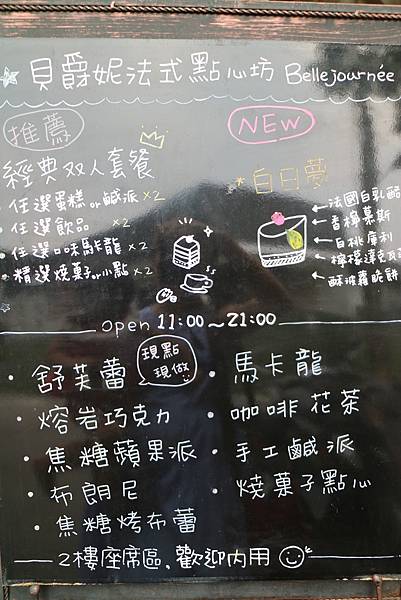 貝爵妮法式點心坊 Bellejournée
推薦
NEW
經典双人套餐
・任選蛋糕or鹹派 ×2
・任選飲品 ×2
・任選口味馬卡龍 ×2
・精選燒菓子or小點 ×2
*白日夢
法國白乳酪
香檸慕斯
白桃庫利
檸檬達克瓦茲
酥波蘿脆餅
open 11:00~21:00
・舒芙蕾
現點現做
・熔岩巧克力
・焦糖蘋果派
・布朗尼
・焦糖烤布蕾
・馬卡龍
・咖啡花茶
・手工鹹派
・燒菓子點心
2樓座席區,歡迎內用